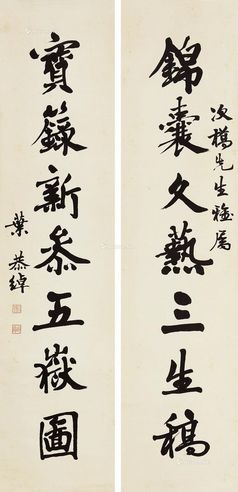 錦囊久蓺三生稿
次楊先生雅屬
寶籙新參五嶽圖
葉恭綽